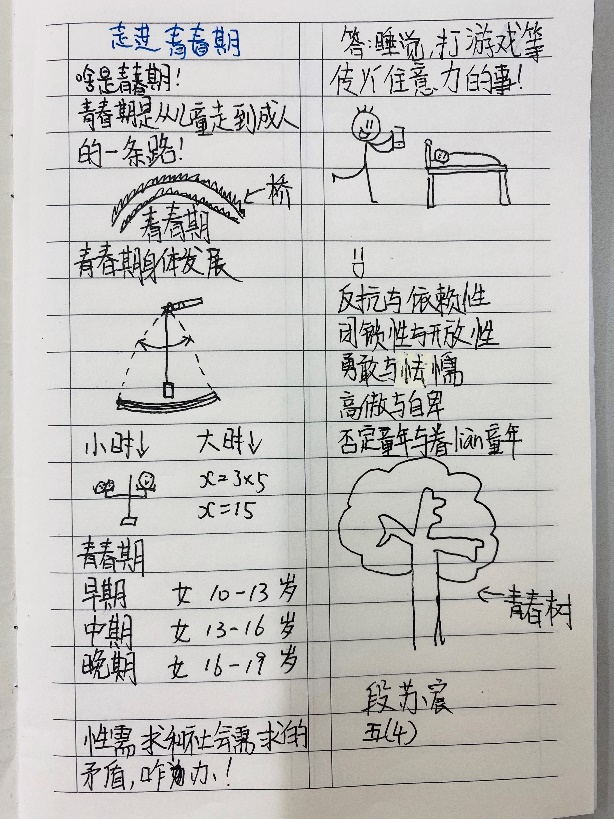 走进青春期
啥是青春期!
青春期是从儿童走到成人
的一条路!
←桥
青春期
青春期身体发展
小时↓ 大时↓
x=3×5
x=15
青春期
早期 女 10-13岁
中期 女 13-16岁
晚期 女 16-19岁
性需求和社会需求的
矛盾,咋为办!
答:睡觉,打游戏等
使分住意力的事!
反抗与依赖性
闭锁性与开放性
勇敢与怯懦
高傲与自卑
否定童年与眷lian童年
←青春树
段苏宸
五(4)